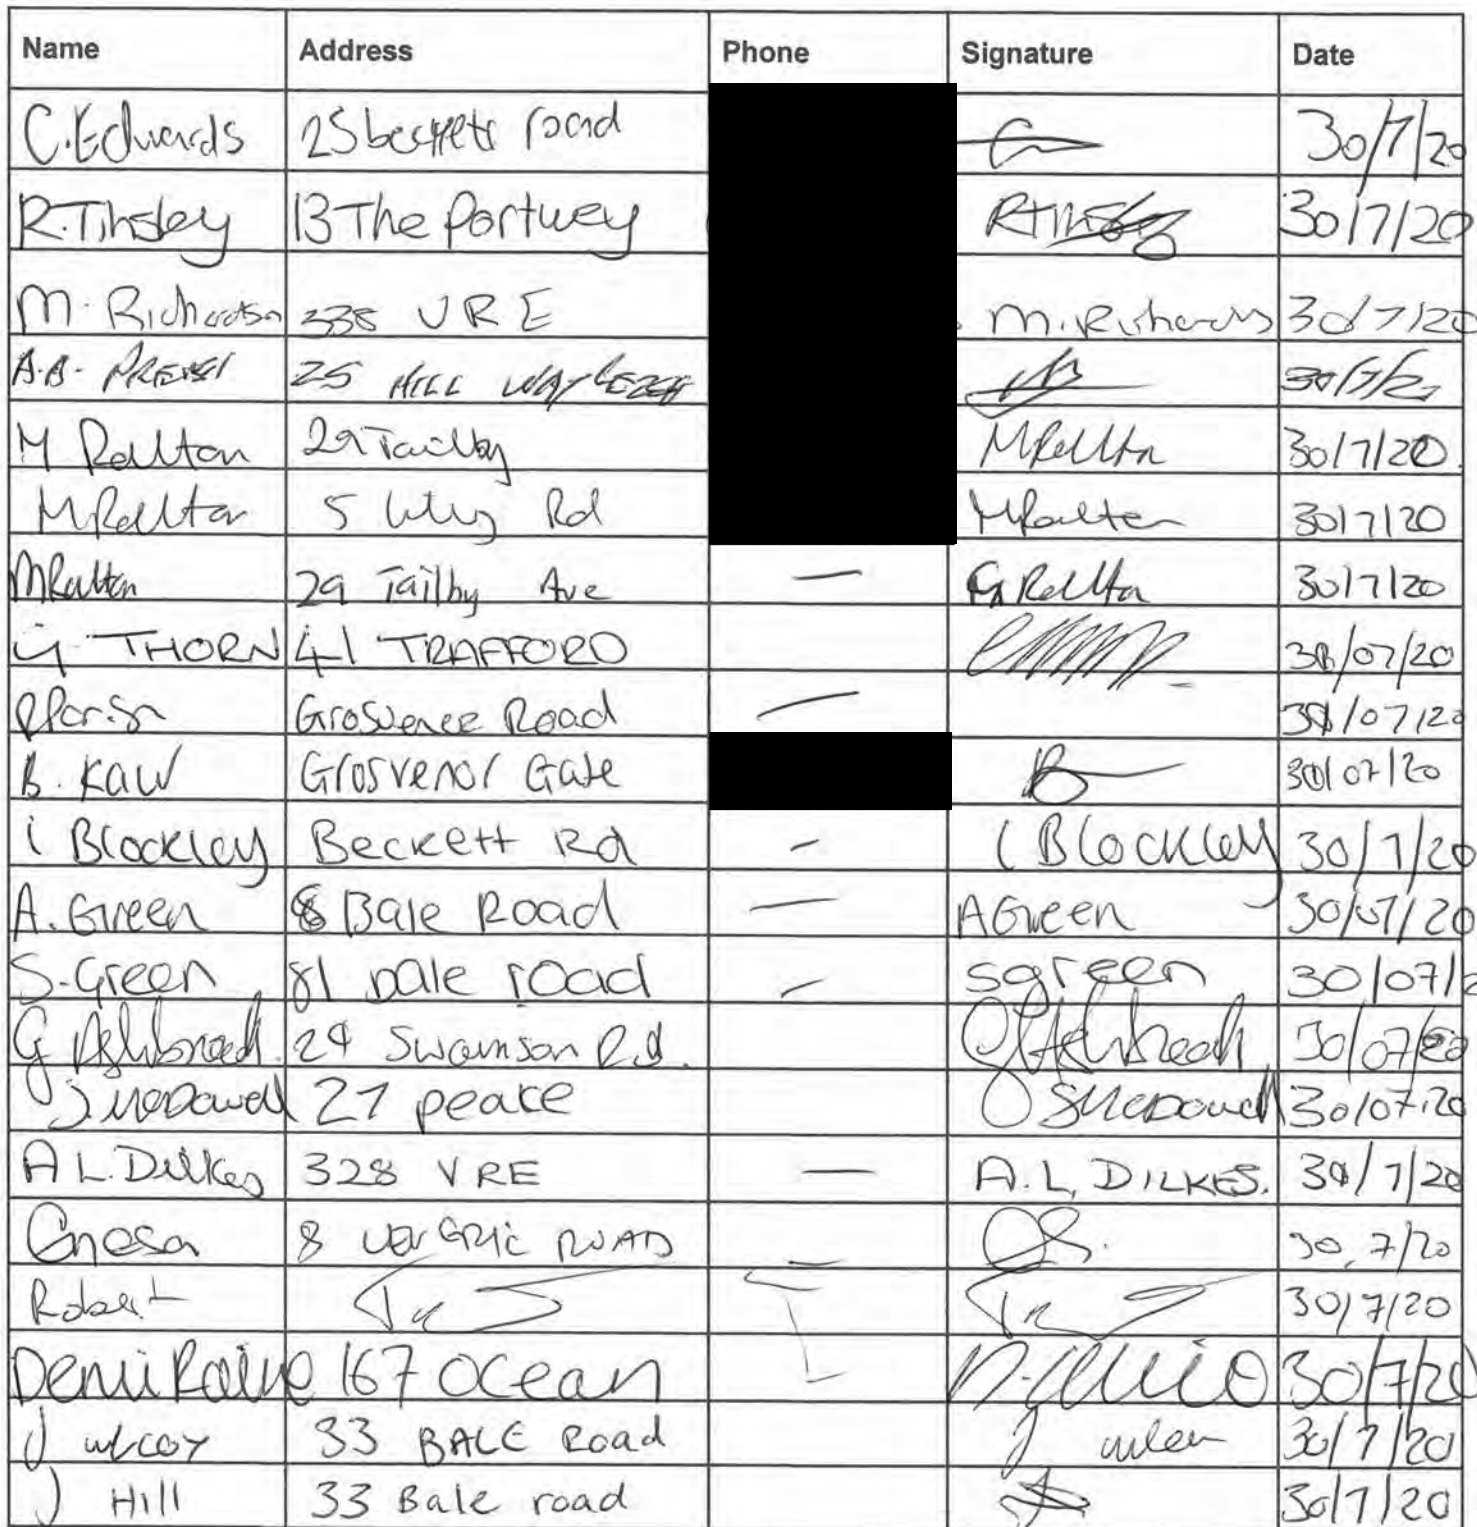 Name Address Phone Signature Date
C. Edwards 25 becketts road 30/7/20
R. Tinsley 13 The Portwey RTinsley 30/7/20
M. Richardson 338 VRE M. Richards 30/7/20
A.B. 25 HILL WAY 30/7/20
M Ralton 29 Tailby MRalton 30/7/20.
MRalton 5 Rd MRalton 30/7/20
MRalton 29 Tailby Ave — G Ralton 30/7/20
G THORN 41 TRAFFORD 30/07/20
Road — 30/07/20
B. Kaur Grosvenor Gate 30/07/20
i Blockley Beckett Rd - i Blockley 30/7/20
A. Green 8 Bale Road — A Green 30/07/20
S. Green 81 Dale road - sgreen 30/07/2
G Ashbread. 24 Swainson Rd. 30/07/20
S. McDowell 27 peake S McDowell 30/07.20
A L. Dilkes 328 VRE — A.L. DILKES. 30/7/20
8 ROAD 30.7/20
Robert 30/7/20
Demi Raine 167 Ocean 30/7/20
J 33 BALE Road J 30/7/20
J Hill 33 Bale road 30/7/20